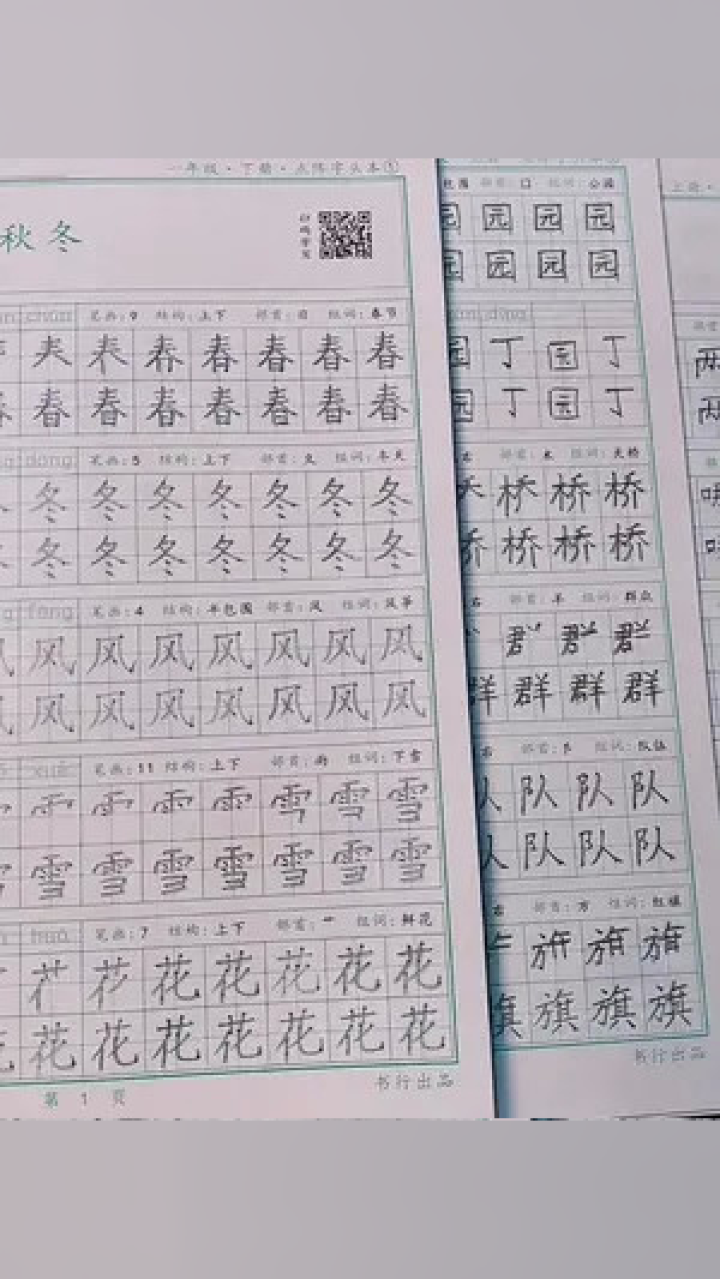 一年级·下册·点阵字头本①
秋冬
扫码学写
chūn 笔画:9 结构:上下 部首:日 组词:春节
春 春 春 春
春 春 春 春 春 春 春
dōng 笔画:5 结构:上下 部首:夂 组词:冬天
冬 冬 冬 冬 冬 冬 冬
冬 冬 冬 冬 冬 冬 冬
fēng 笔画:4 结构:半包围 部首:风 组词:风筝
风 风 风 风 风 风 风
风 风 风 风 风 风 风
xuě 笔画:11 结构:上下 部首:雨 组词:下雪
雪 雪 雪
雪 雪 雪 雪 雪 雪 雪
huā 笔画:7 结构:上下 部首:艹 组词:鲜花
花 花 花 花 花
花 花 花 花 花 花 花
第 1 页
书行出品
包围 部首:囗 组词:公园
园 园 园 园
园 园 园 园
dīng
园 丁 园 丁
园 丁 园 丁
右 部首:木 组词:天桥
桥 桥
桥 桥 桥 桥
右 部首:羊 组词:群众
群 群 群 群
右 部首:阝 组词:队伍
队 队 队
队 队 队
右 部首:方 组词:红旗
旗 旗 旗 旗
书行出品
上册·